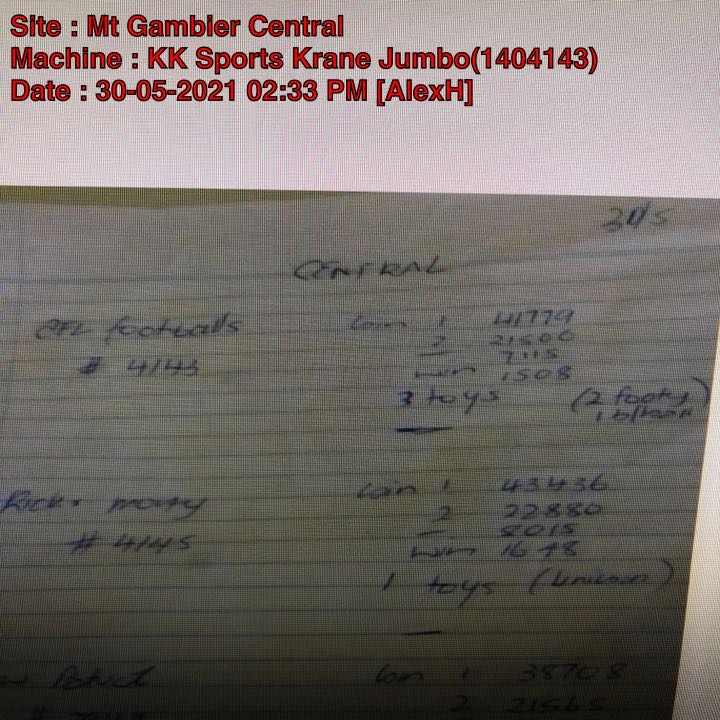 Site : Mt Gambier Central
Machine : KK Sports Krane Jumbo(1404143)
Date : 30-05-2021 02:33 PM [AlexH]
CENTRAL
AFL footballs Coin 1 41779
2 21500
# 4143 7115
win 1508
3 toys (2 footy
Rick + morty Coin 1 43436
2 22880
# 4145 8015
win 1648
1 toys (Unicorn)
Coin 1 38708
2 21565